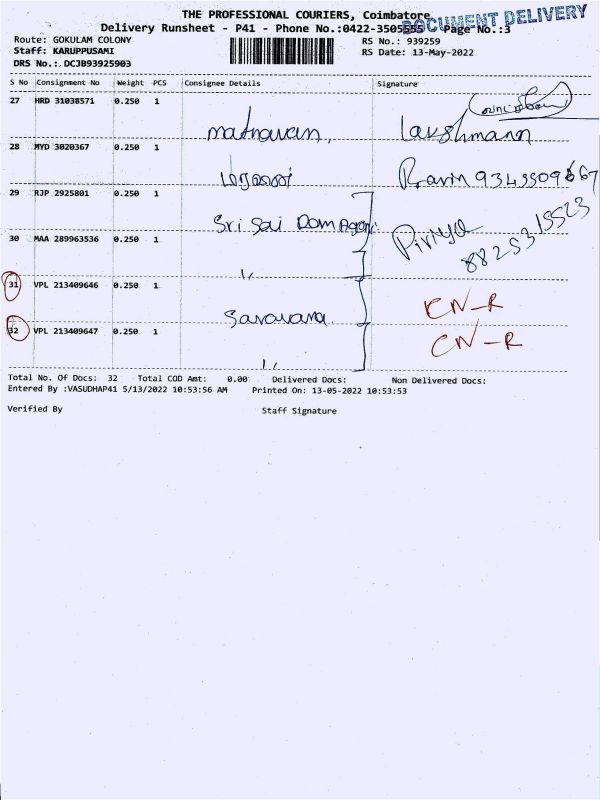 THE PROFESSIONAL COURIERS, Coimbatore
DOCUMENT DELIVERY
Delivery Runsheet - P41 - Phone No.:0422-3505555 Page No.:3
Route: GOKULAM COLONY
RS No.: 939259
Staff: KARUPPUSAMI
RS Date: 13-May-2022
DRS No.: DCJB93925903
S No Consignment No Weight PCS Consignee Details Signature
27 HRD 31038571 0.250 1
mathavan, Lakshmann
28 MYD 3020367 0.250 1
29 RJP 2925801 0.250 1
Sri Sai
30 MAA 289963536 0.250 1
Piriya
8825315523
"
31 VPL 213409646 0.250 1
Saravana CN-R
32 VPL 213409647 0.250 1
CN-R
"
Total No. Of Docs: 32 Total COD Amt: 0.00 Delivered Docs: Non Delivered Docs:
Entered By :VASUDHAP41 5/13/2022 10:53:56 AM Printed On: 13-05-2022 10:53:53
Verified By Staff Signature